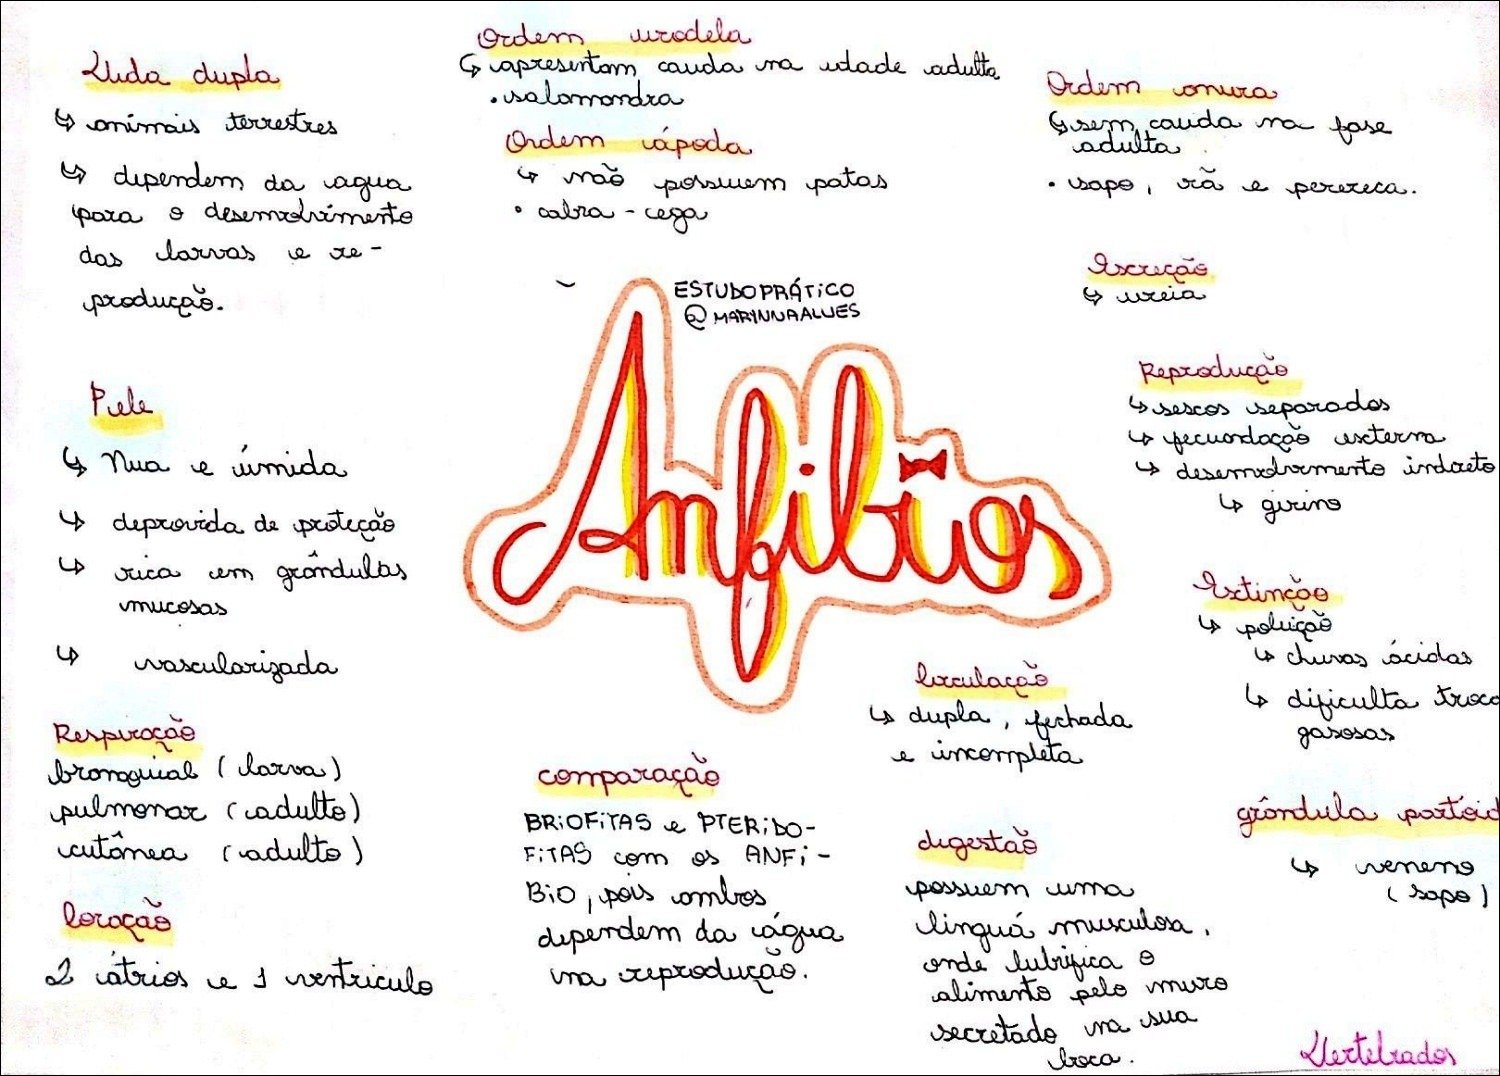 Vida dupla
↳ animais terrestres
↳ dependem da agua
para o desenvolvimento
das larvas e re-
produção.
Ordem urodela
↳ apresentam cauda na idade adulta
• salamandra
Ordem ápoda
↳ não possuem patas
• cobra-cega
Ordem anura
↳ sem cauda na fase
adulta.
• sapo, rã e perereca.
Excreção
↳ ureia
ESTUDOPRÁTICO
@MARYNNAALVES
Anfíbios
Pele
↳ Nua e úmida
↳ deprovida de proteção
↳ rica em glândulas
mucosas
↳ vascularizada
Reprodução
↳ sexos separados
↳ fecundação externa
↳ desenvolvimento indireto
↳ girino
Extinção
↳ poluição
↳ chuvas ácidas
↳ dificulta troca
gasosas
Respiração
branquial (larva)
pulmonar (adulto)
cutânea (adulto)
Coração
2 átrios e 1 ventriculo
comparação
BRIOFITAS e PTERIDO-
FITAS com os ANFÍ-
BIO, pois ambos
dependem da água
na reprodução.
Circulação
↳ dupla, fechada
e incompleta
digestão
possuem uma
linguá musculosa,
onde lubrifica o
alimento pelo muco
secretado na sua
boca.
glândula
↳ veneno
(sapo)
Vertebrados